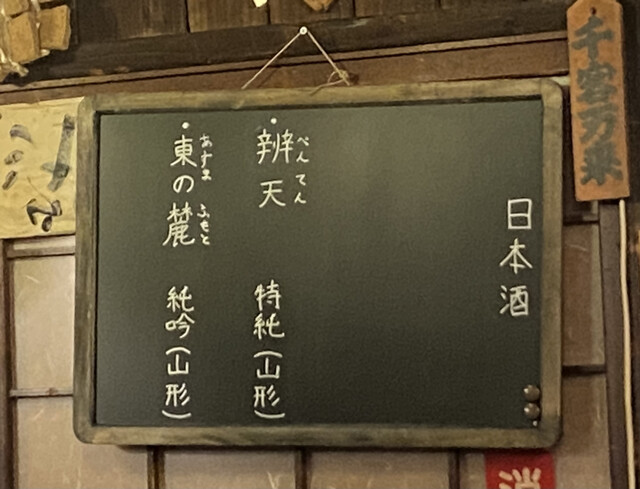 千客万来
日本酒
・辨天 特純(山形)
べんてん
・東の麓 純吟(山形)
あずま ふもと
消